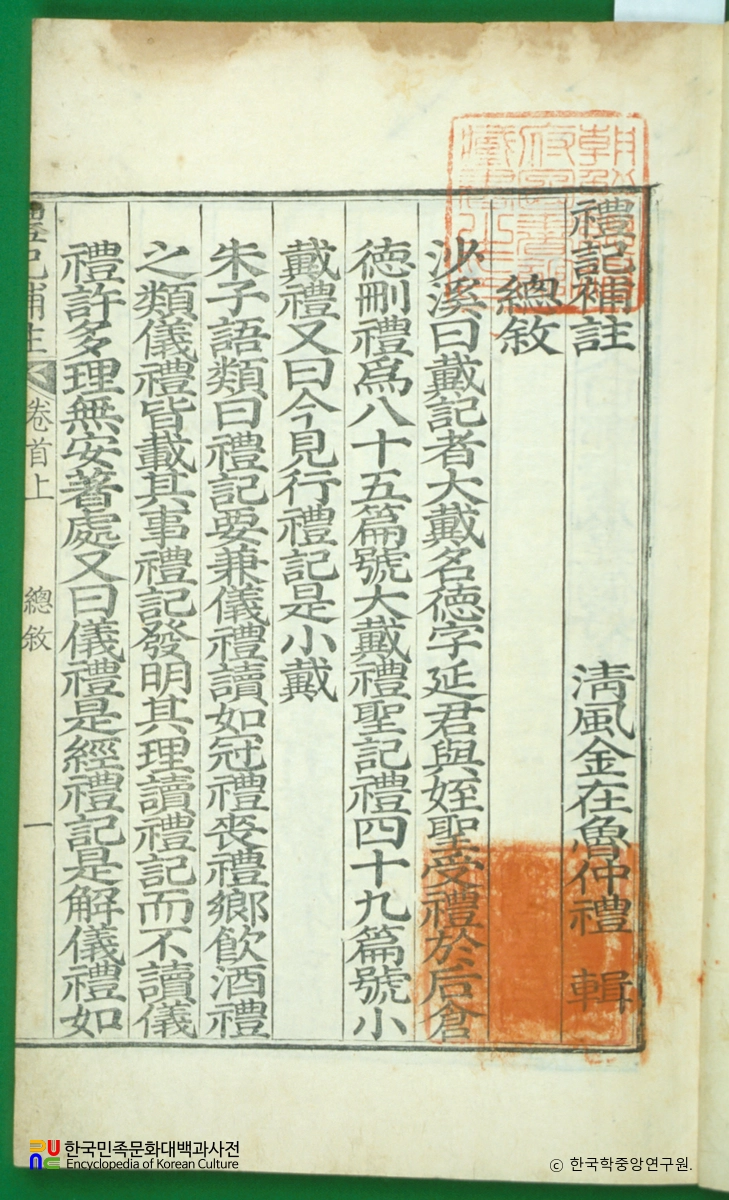 禮記補註
淸風金在魯仲禮 輯
總敘
沙溪曰戴記者大戴名德字延君與姪聖受禮於后倉
德刪禮爲八十五篇號大戴禮聖記禮四十九篇號小
戴禮又曰今見行禮記是小戴
朱子語類曰禮記要兼儀禮讀如冠禮喪禮鄕飮酒禮
之類儀禮皆載其事禮記發明其理讀禮記而不讀儀
禮許多理無安著處又曰儀禮是經禮記是解儀禮如
禮記補註
卷首上
總敘
一
한국민족문화대백과사전
Encyclopedia of Korean Culture
ⓒ 한국학중앙연구원.